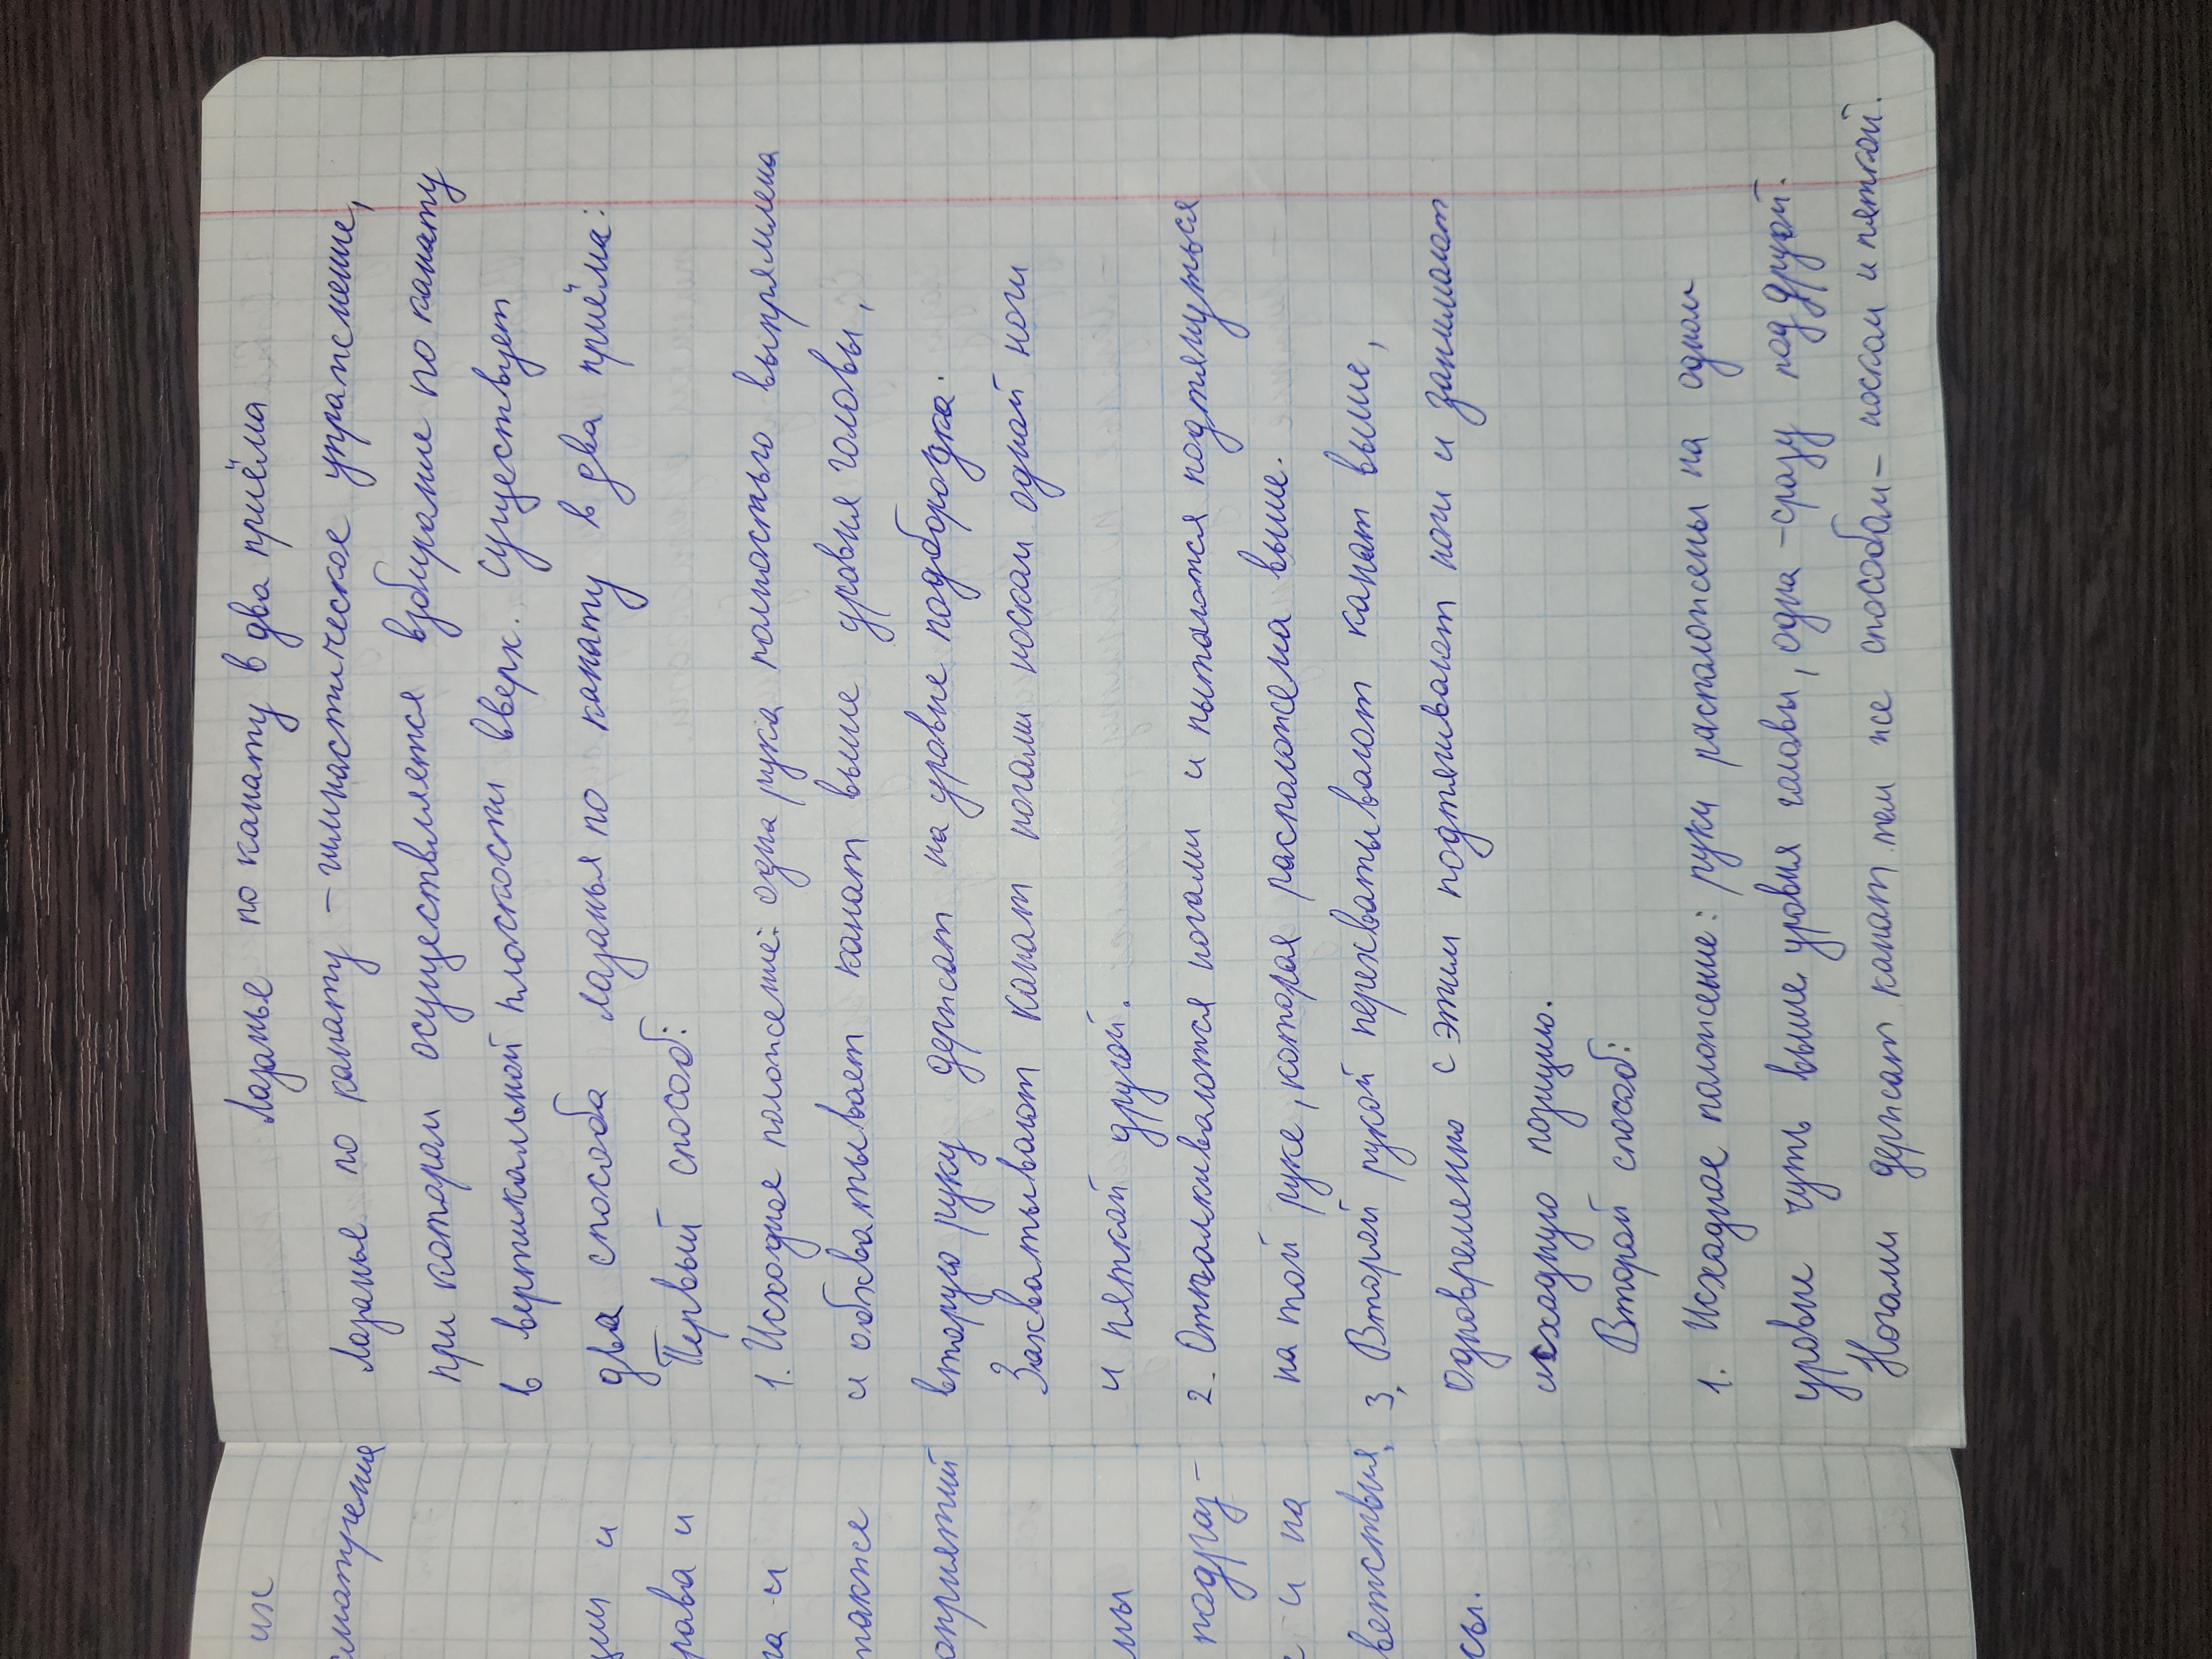 Лазанье по канату в два приёма
Лазанье по канату - гимнастическое упражнение,
при котором осуществляется взбирание по канату
в вертикальной плоскости вверх. Существует
два способа лазанья по канату в два приёма:
Первый способ:
1. Исходное положение: одна рука полностью выпрямлена
и обхватывает канат выше уровня головы,
вторую руку держат на уровне подбородка.
Захватывают канат ногами носком одной ноги
и пяткой другой.
2. Отталкиваются ногами и пытаются подтянуться
на той руке, которая расположена выше.
3. Второй рукой перехватывают канат выше,
одновременно с этим подтягивают ноги и занимают
исходную позицию.
Второй способ:
1. Исходное положение: руки расположены на одном
уровне чуть выше уровня головы, одна - сразу под другой.
Ногами держат канат тем же способом - носком и пяткой.
их
сматучена
ции и
рава и
га и
также
оприятий
мы
подраз-
е и на
ветствия,
сы.